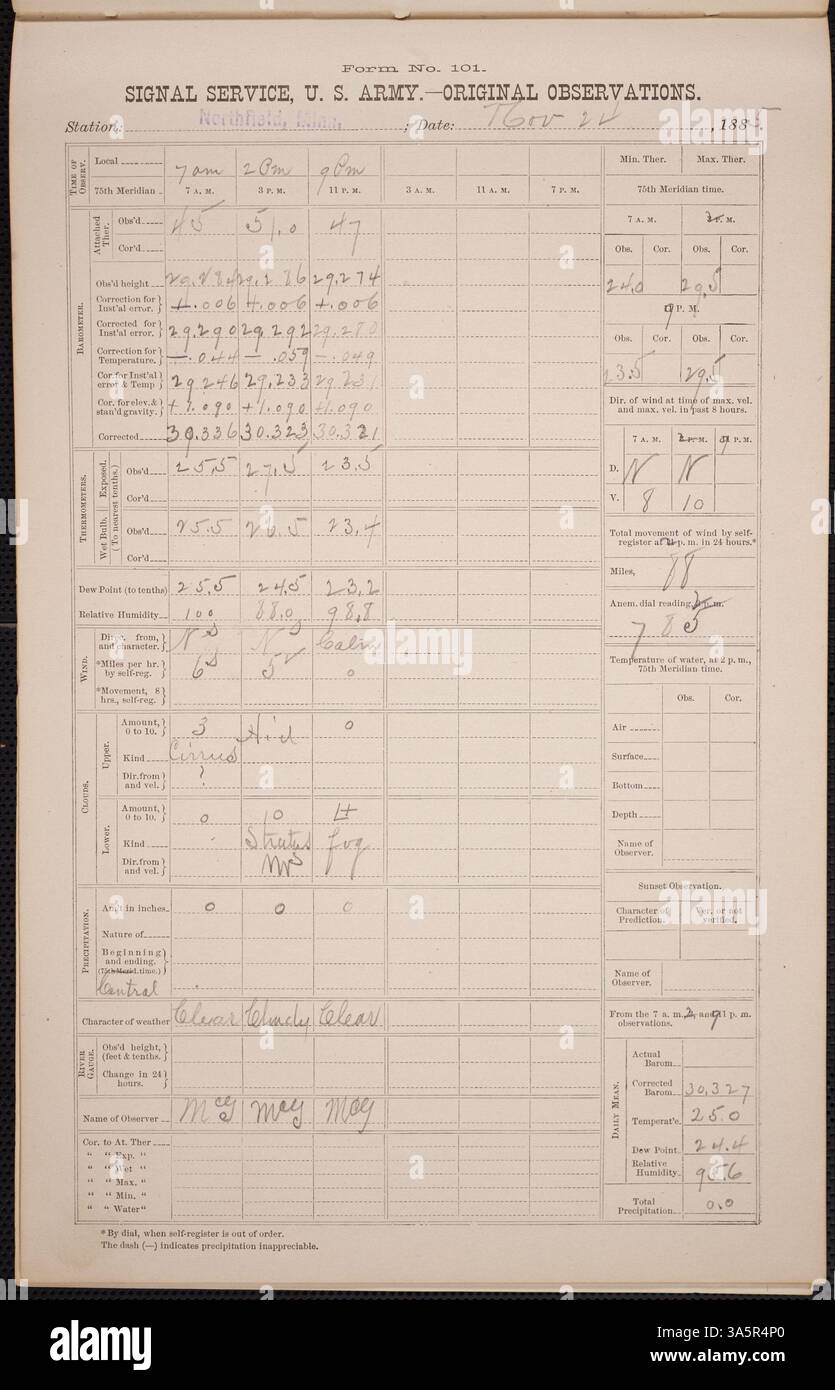 Form No. 101.
SIGNAL SERVICE, U. S. ARMY.—ORIGINAL OBSERVATIONS.
Station: Northfield, Minn. ; Date: Nov 24, 1885.
TIME OF OBSERV.
Local 7 am 2 Pm 9 Pm
75th Meridian 7 A. M. 3 P. M. 11 P. M. 3 A. M. 11 A. M. 7 P. M.
BAROMETER.
Attached Ther.
Obs'd 45 51.0 47
Cor'd
Obs'd height 29.284 29.286 29.274
Correction for Inst'al error. +.006 +.006 +.006
Corrected for Inst'al error. 29.290 29.292 29.280
Correction for Temperature. —.044 —.059 —.049
Cor. for Inst'al error & Temp 29.246 29.233 29.231
Cor. for elev. & stan'd gravity. +1.090 +1.090 +1.090
Corrected 30.336 30.323 30.321
THERMOMETERS.
(To nearest tenths.)
Exposed.
Obs'd 25.5 27.5 23.5
Cor'd
Wet Bulb.
Obs'd 25.5 26.5 23.4
Cor'd
Dew Point (to tenths) 25.5 24.5 23.2
Relative Humidity 100 88.0 98.8
WIND.
Dirc. from, and character. N S N S Calm
*Miles per hr. by self-reg. 6 5 0
*Movement, 8 hrs., self-reg.
CLOUDS.
Upper.
Amount, 0 to 10. 3 Hid 0
Kind Cirrus
Dir. from and vel. ?
Lower.
Amount, 0 to 10. 0 10
Kind Stratus fog
Dir. from and vel.
PRECIPITATION.
Am't in inches 0 0 0
Nature of
Beginning and ending. (75th Merid. time.)
Central
Character of weather Clear Cloudy Clear
RIVER GAUGE.
Obs'd height, (feet & tenths.)
Change in 24 hours.
Name of Observer McG McG McG
Cor. to At. Ther
" " Exp. "
" " Wet "
" " Max. "
" " Min. "
" " Water "
*By dial, when self-register is out of order.
The dash (—) indicates precipitation inappreciable.
Min. Ther. Max. Ther.
75th Meridian time.
7 A. M. 2 P. M.
Obs. Cor. Obs. Cor.
24.0 29.5
9 P. M.
Obs. Cor. Obs. Cor.
23.5 29.5
Dir. of wind at time of max. vel. and max. vel. in past 8 hours.
7 A. M. 2 P. M. 9 P. M.
D. N N
V. 8 10
Total movement of wind by self-register at p. m. in 24 hours.*
Miles, 88
Anem. dial reading, p. m.
785
Temperature of water, at 2 p. m., 75th Meridian time.
Obs. Cor.
Air
Surface
Bottom
Depth
Name of Observer.
Sunset Observation.
Character of Prediction. Ver. or not verified.
Name of Observer.
From the 7 a. m., 2, and 9 p. m. observations.
DAILY MEAN.
Actual Barom
Corrected Barom 30.327
Temperat'e. 25.0
Dew Point. 24.4
Relative Humidity. 95.6
Total Precipitation 0.0
alamy
Image ID: 3A5R4P0
www.alamy.com